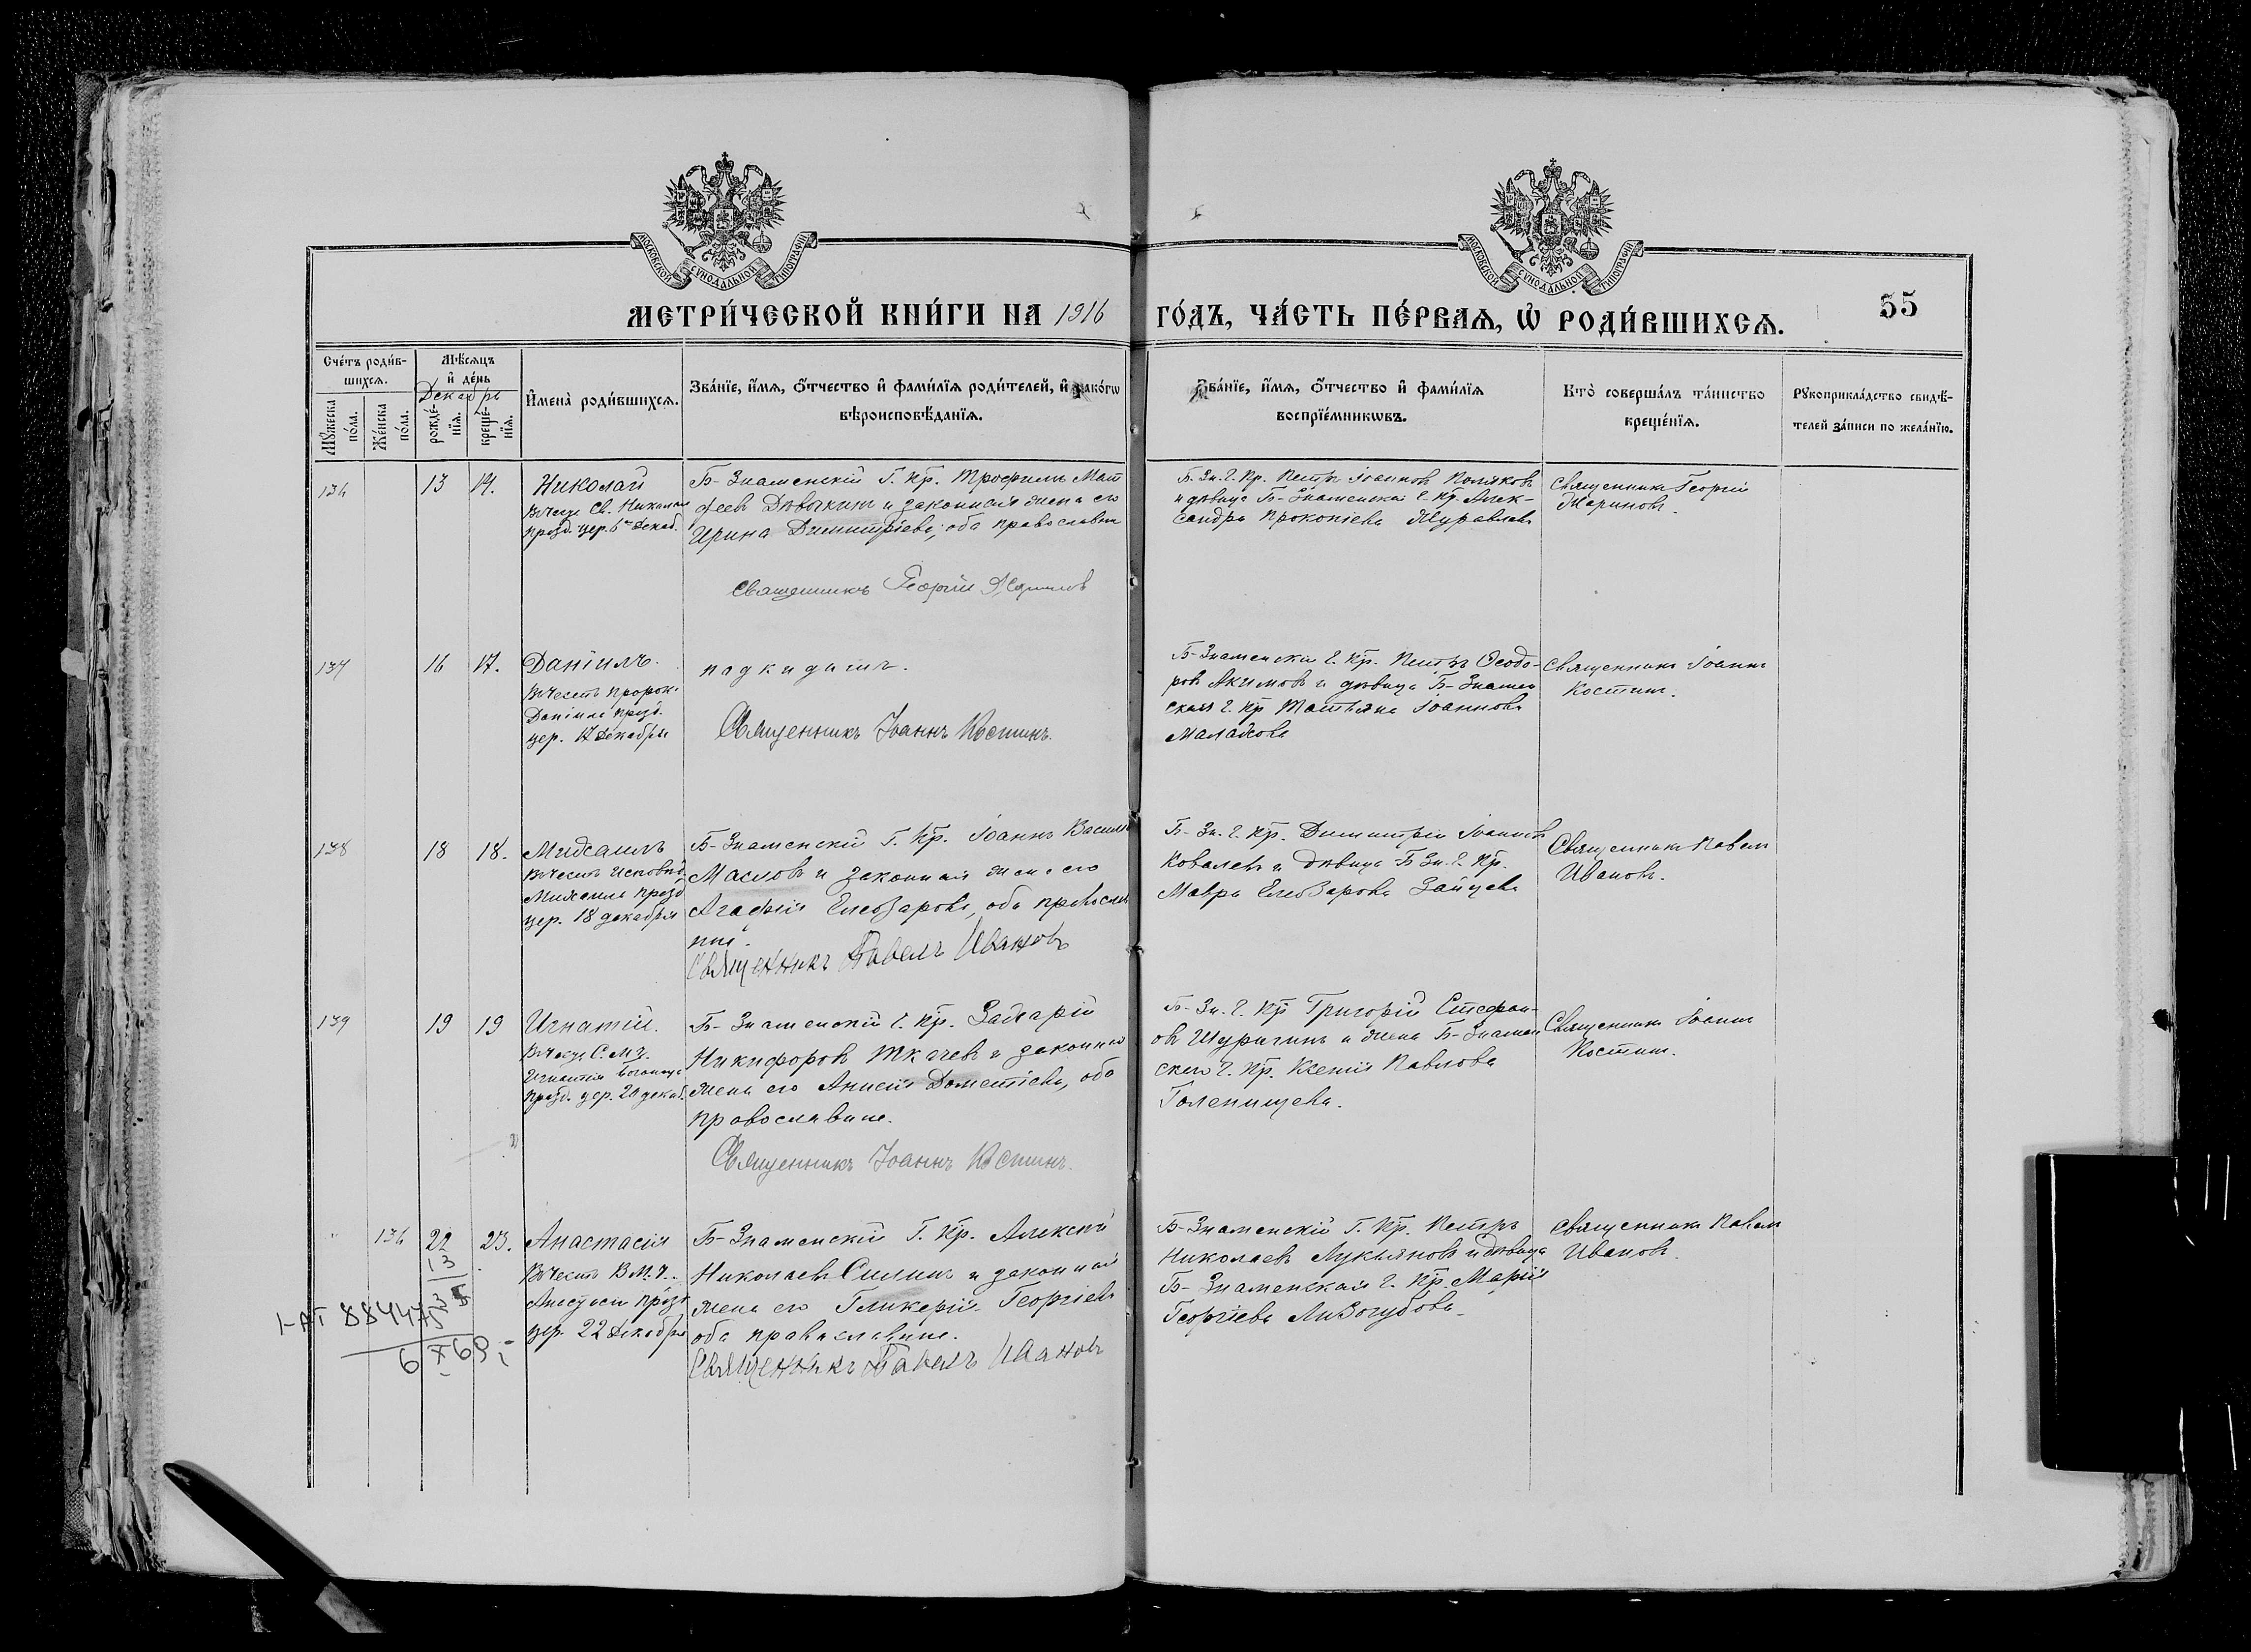 МОСКОВСКОЙ СѴНОДАЛЬНОЙ ТИПОГРАФІИ
МОСКОВСКОЙ СѴНОДАЛЬНОЙ ТИПОГРАФІИ
МЕТРИ́ЧЕСКОЙ КНИ́ГИ НА 1916
ГО́ДЪ, ЧА́СТЬ ПЕ́РВАЯ, Ѡ РОДИ́ВШИХСЯ.
55
Сче́тъ роди́в-
шихся.
Мꙋжеска по́ла.
Же́нска по́ла.
Мѣ́сяцъ
и҆ де́нь
Декабрь
рожде́-
нїя.
креще́-
нїя.
И҆мена̀ роди́вшихся.
Зва́нїе, и҆́мя, ѻ҆́тчество и҆ фами́лїя роди́телей, и҆ како́гѡ
вѣроисповѣ́данїя.
Зва́нїе, и҆́мя, ѻ҆́тчество и҆ фами́лїя
воспрїе́мникѡвъ.
Кто̀ соверша́лъ та́инство
креще́нїя.
Рꙋкоприкла́дство свидѣ́-
телей за́писи по жела́нїю.
13
Николай
Б-Знаменскій Г. Кр. Трофимъ Мат
феевъ и законная жена его
Ирина Димитріева, оба православн
Б. Зн. Г. Кр. Петръ Іоанновъ Поляковъ
и дѣвица Б-Знаменская Г. Кр. Алек-
сандра Прокопіева Журавлева
Священникъ Георгій
Священникъ Георгій
137
16 17.
Даніилъ.
Въ честь Пророк.
Даніила празд.
цер. 17 Декабря
подкидышъ.
Священникъ Іоаннъ Костинъ.
Б-Знаменскій Г. Кр. Петръ Ѳеодо-
ровъ Акимовъ и дѣвица Б-Знамен
ская Г. Кр Татьяна Іоаннова
Малахова
Священникъ Іоаннъ
Костинъ.
138
18 18.
Михаилъ
Въ честь Исповѣд.
Михаила празд
цер. 18 декабря
Б-Знаменскій Г. Кр. Іоаннъ Васильев
Масловъ и законная жена его
Агафія Елеазарова, оба православ
ные.
Священникъ Павелъ Ивановъ
Б-Зн. Г. Кр. Димитрій Іоаннов
Ковалевъ и дѣвица Б Зн. Г. Кр.
Мавра Елеазарова Зайцева
Священникъ Павелъ
Ивановъ.
139
19 19
Игнатій.
Игнатія Богоносца
празд. цер. 20 декаб.
Б-Знаменскій Г. Кр. Захарій
Никифоровъ Ткачевъ и законная
жена его Анисія Дометіева, оба
православные.
Священникъ Іоаннъ Костинъ.
Б-Зн. Г. Кр Григорій Стефан-
овъ Шуригинъ и жена Б-Знамен
ского Г. Кр. Ксенія Павлова
Голенищева.
Священникъ Іоаннъ
Костинъ.
136
22 23.
Анастасія
Въ честь В.М.Ч.
Анастасіи празд
цер. 22 Декабря
Б-Знаменскій Г. Кр. Алексѣй
Николаевъ Силинъ и законная
жена его Гликерія Георгіева
оба православные.
Священникъ Павелъ Ивановъ
Б-Знаменскій Г. Кр. Петръ
Николаевъ Лукьяновъ и дѣвица
Б-Знаменская Г. Кр. Марія
Георгіева Лизогубова
Священникъ Павелъ
Ивановъ.